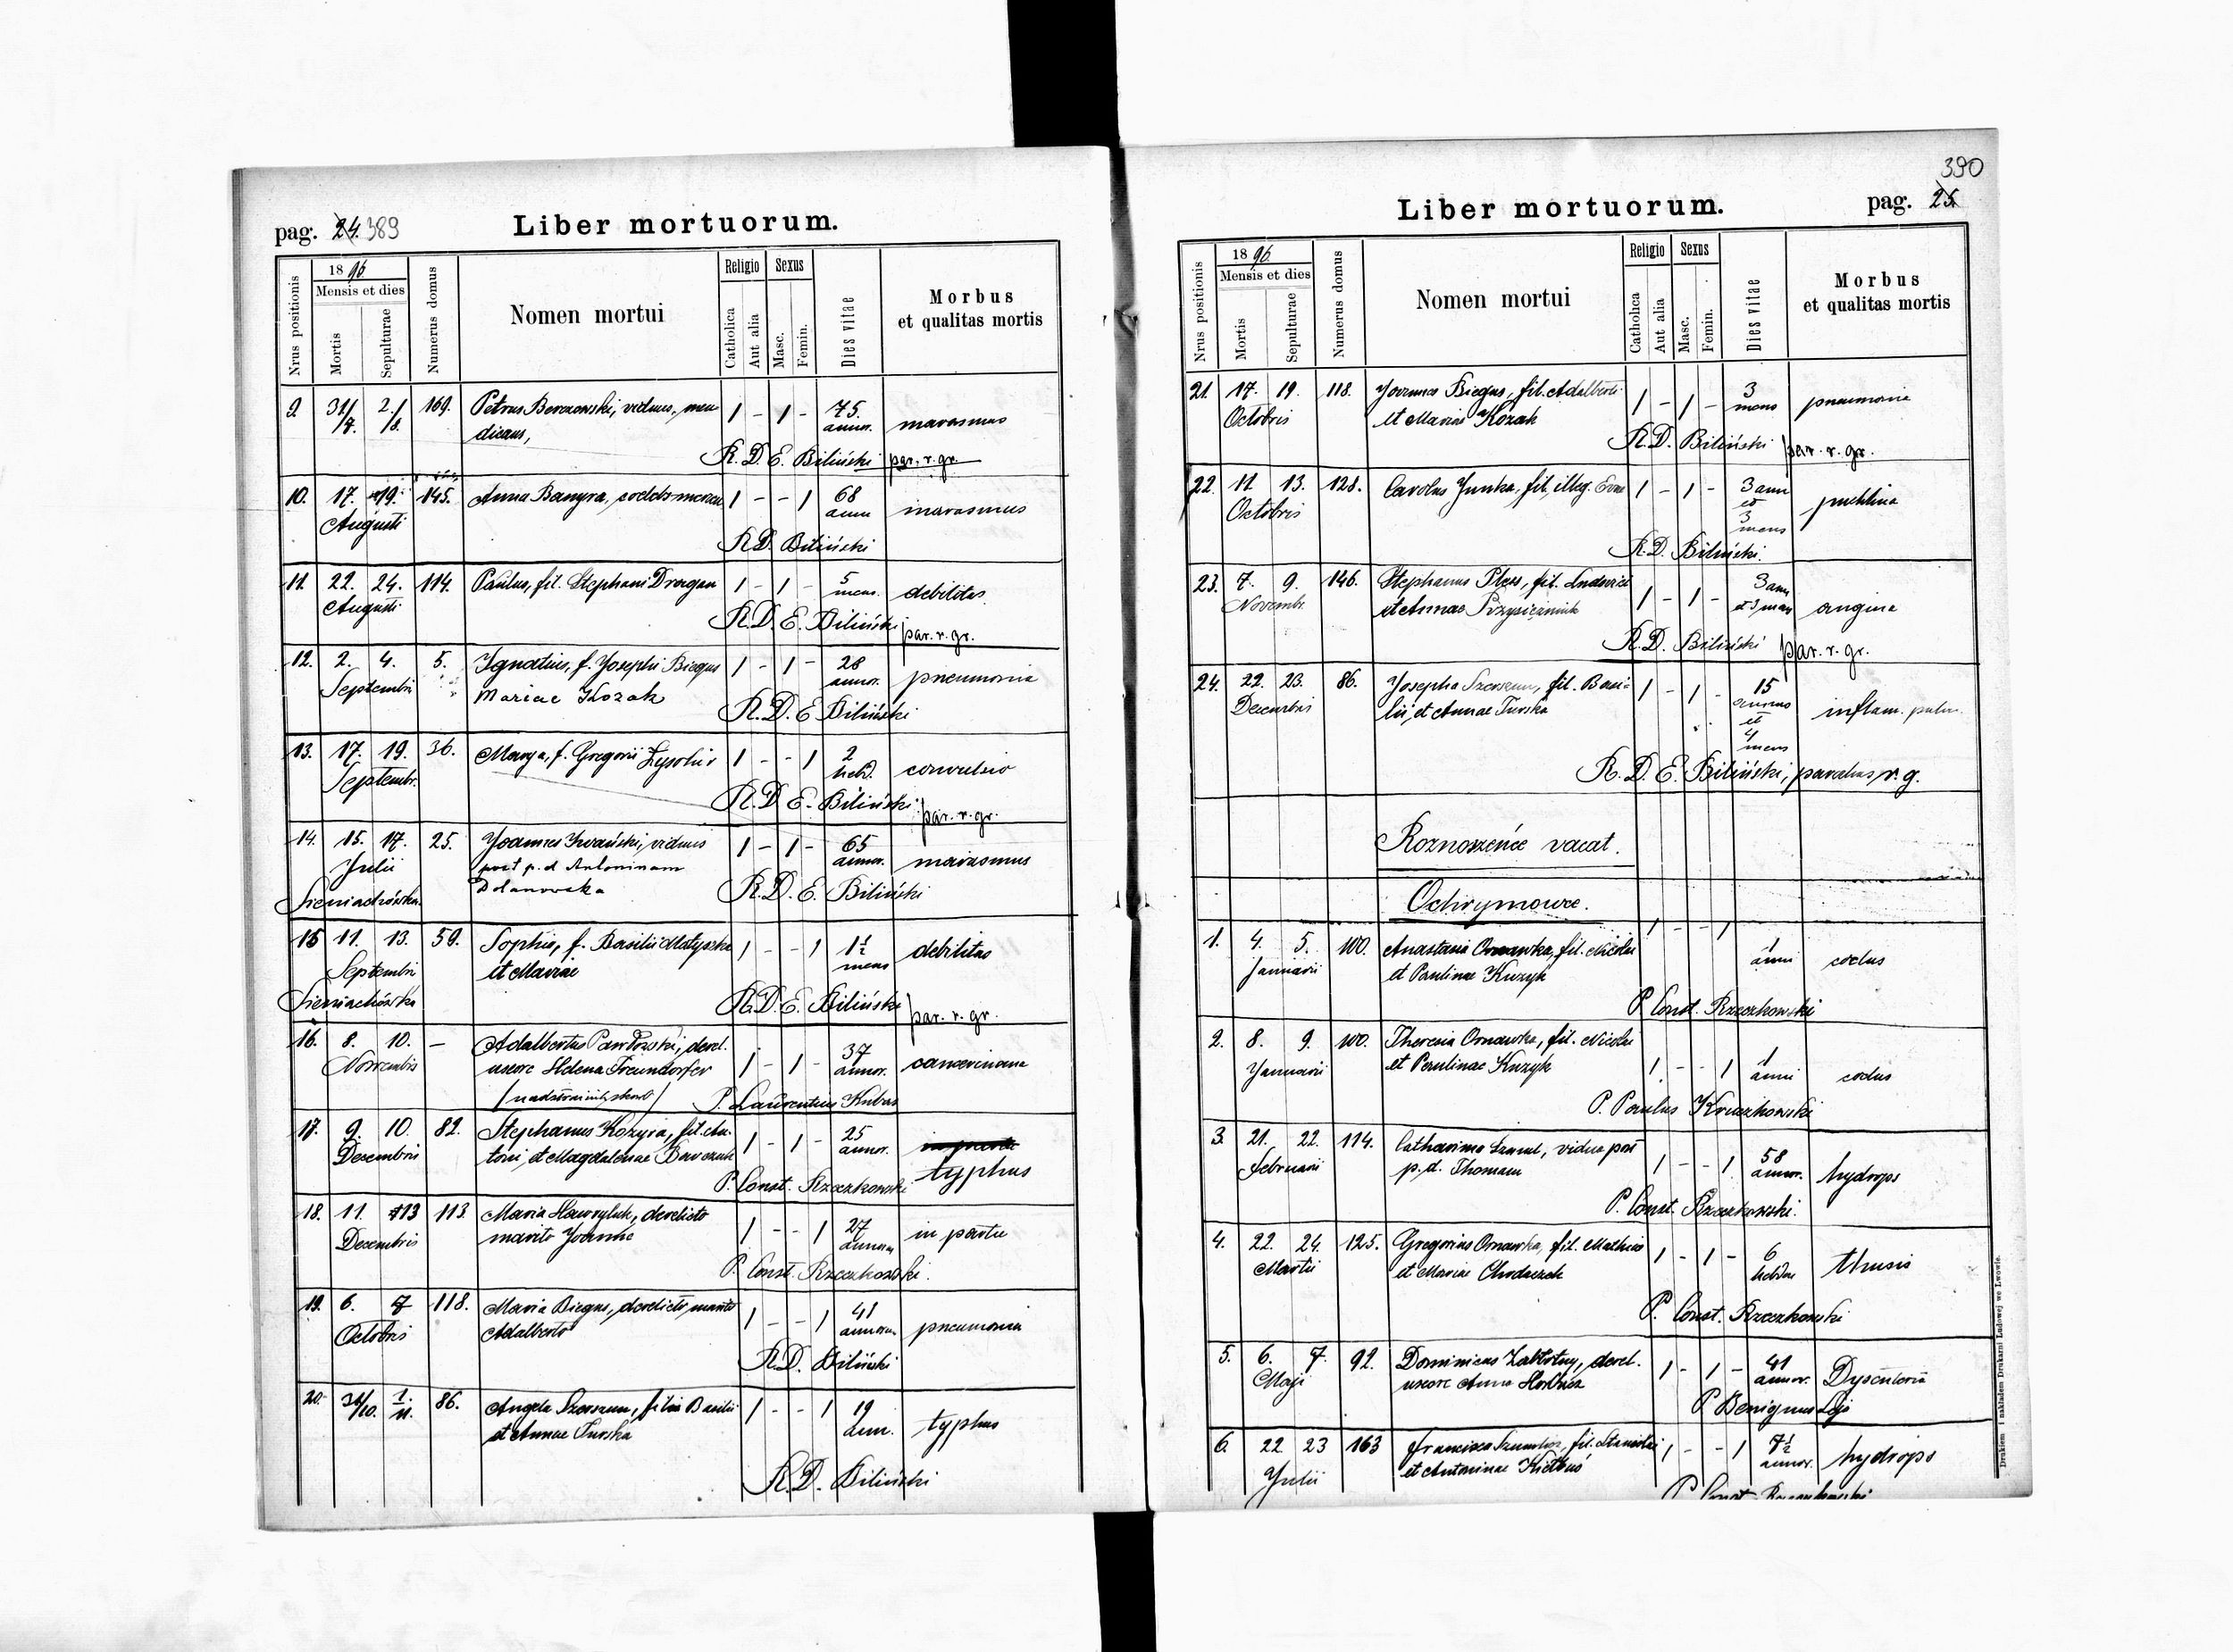 pag. 24. 389
Liber mortuorum.
Nrus positionis
1896
Mensis et dies
Mortis
Sepulturae
Numerus domus
Nomen mortui
Religio
Catholica
Aut alia
Sexus
Masc.
Femin.
Dies vitae
Morbus
et qualitas mortis
9. 31/7. 2./8. 169. Petrus Berezowski, viduus, men 1 - 1 - 75. annor. marasmus
dicans,
R. D. E. Biliński par. r. gr.
10. 17. 19. 145. Anna Banyra, 1 - - 1 68 ann marasmus
Augusti
R.D. Biliński
11. 22. 24. 114. Paulus, fil. Stephani Dragan 1 - 1 - 5 mens. debilitas
Augusti
R.D. E. Biliński par. r. gr.
12. 2. 4. 5. Ignatius, f. Josephi Biegus 1 - 1 - 28 annor. pneumonia
Septembri Mariae Kozak
R.D. E Biliński
13. 17. 19. 36. Marya, f. Gregorii 1 - - 1 2 hebd. convulsio
Septembr.
R.D. E. Biliński par. r. gr.
14. 15. 17. 25. Joannes Iwański, viduus 1 - 1 - 65 annor. marasmus
Julii post p. d. Antoninam
Sieniachówka Dolanowska
R.D. E. Biliński
15 11. 13. 59. Sophia, f. Basilii Matyszka 1 - - 1 1½ mens debilitas
Septembri et Mariae
Sieniachówka
R.D. E. Biliński par. r. gr.
16. 8. 10. - Adalbertus Pawłowski, derel. 1 - 1 - 37 annor.
Novembris uxore Helena
P. Laurentius Kubas
17. 9. 10. 82. Stephanus Kozyra, fil. An- 1 - 1 - 25 annor. typhus
Decembris toni, et Magdalenae
P. Const. Rzeczkowski
18. 11. 13 113. Maria Hawryluk, derelicto 1 - - 1 27 annorum in partu
Decembris marito Joanne
P. Const. Rzeczkowski.
19. 6. 7 118. Maria Biegus, derelicto marito 1 - - 1 41 annorum pneumonia
Octobris Adalberto
R.D. Biliński
20. 31/10. 1./11. 86. Angela Szerszun, filia Basilii 1 - - 1 19 ann. typhus
et Annae Turska
R.D. Biliński
390
Liber mortuorum.
pag. 25.
Nrus positionis
1896.
Mensis et dies
Mortis
Sepulturae
Numerus domus
Nomen mortui
Religio
Catholica
Aut alia
Sexus
Masc.
Femin.
Dies vitae
Morbus
et qualitas mortis
21. 17. 19. 118. Joannes Biegus, fil. Adalberti 1 - 1 - 3 mens pneumonia
Octobris et Mariae Kozak
R.D. Biliński par. r. gr.
22. 11 13. 128. Carolus Junka, fil. illeg. Evae 1 - 1 - 3 ann et 3 mens
Octobris
R.D. Biliński.
23. 7. 9. 146. Stephanus Pless, fil. Ludovici 1 - 1 - 3 ann et 3 men angina
Novembr. et Annae
R.D. Biliński par. r. gr.
24. 22. 23. 86. Josepha Szerszun, fil. Basi- 1 - 1 - 15 annorum et 4 mens inflam. pulm.
Decembris lii, et Annae Turska
R. D. E. Biliński, parochus r. g.
Roznoszeńce vacat.
Ochrymowce.
1. 4. 5. 100. Anastasia Ornawka, fil. Nicolai 1 - - 1 1 anni coclus
Januarii et Paulinae Kuzyk
P. Const. Rzeczkowski
2. 8. 9. 100. Theresia Ornawka, fil. Nicolai 1 - - 1 1 anni coclus
Januarii et Paulinae Kuzyk
P. Paulus Kruczkowski
3. 21. 22. 114. Catharina vidua post 1 - - 1 58 annor. hydrops
Februarii p. d. Thomam
P. Const. Rzeczkowski.
4. 22. 24. 125. Gregorius Ornawka, fil. Mathias 1 - 1 - 6 hebdom thusis
Martii et Mariae Chodaczek
P. Const. Rzeczkowski
5. 6. 7. 92. Dominicus Zabłotny, derel. 1 - 1 - 41 annor. Dysenteria
Maji uxore Anna
P. Benignus
6. 22 23 163 Francisca fil. Stanislai 1 - - 1 7½ annor. hydrops
Julii et Antoninae Kiełbus
P. Const. Rzeczkowski
Drukiem i nakładem Drukarni Ludowej we Lwowie.